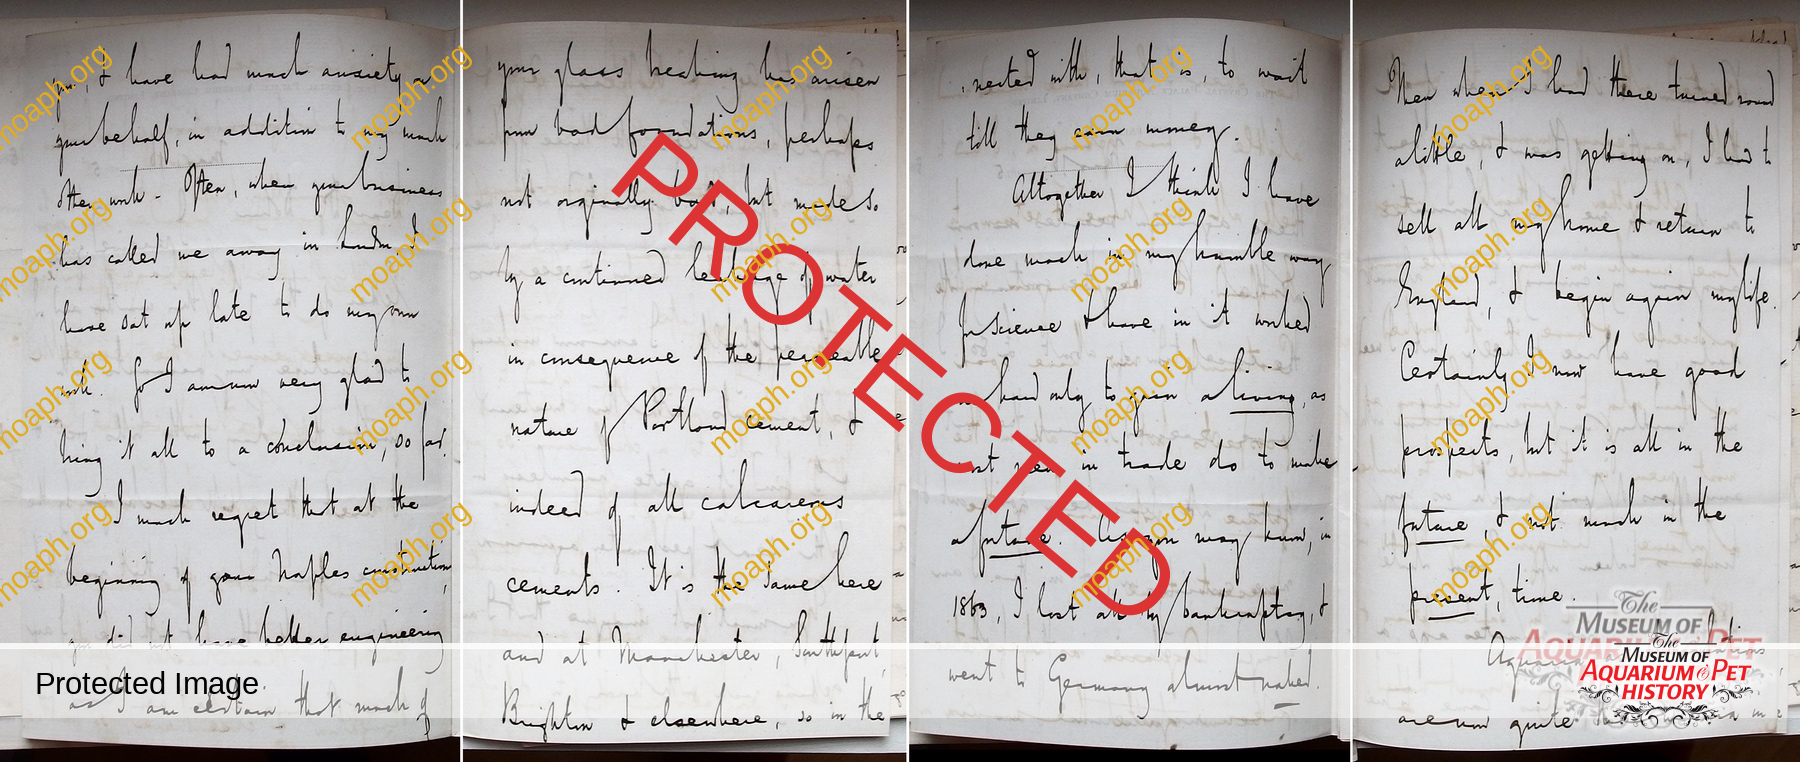 you, & have had much anxiety on
your behalf, in addition to my much
other work - Often, when your business
has called me away in London, I
have sat up late to do my own
work. So I am now very glad to
bring it all to a conclusion, so far.
I much regret that at the
beginning of your Naples construction,
you did not have better engineering
as I am certain that much of
your glass breaking has arisen
from bad foundations, perhaps
not originally bad, but made so
by a continued leakage of water
in consequence of the permeable
nature of Portland cement, &
indeed of all calcareous
cements. It is the same here
and at Manchester, Southport,
Brighton & elsewhere, so in the
nected with, that is, to wait
till they earn money.
Altogether I think I have
done much in my humble way
for science & have in it worked
hard only to gain a living, as
most men in trade do to make
a future. As you may know, in
1863, I lost all by bankruptcy, &
went to Germany almost naked.
Then when I had there turned round
a little, & was getting on, I had to
sell all my home & return to
England, & begin again my life.
Certainly I now have good
prospects, but it is all in the
future, & not much in the
present, time.
are now quite
PROTECTED
Protected Image
The
MUSEUM OF
AQUARIUM & PET
HISTORY
moaph.org